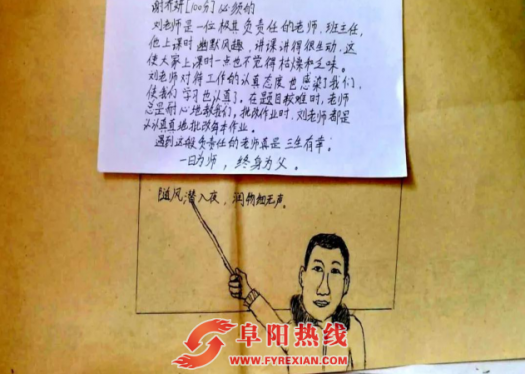 谢希妍[100分]必须的
刘老师是一位极其负责任的老师、班主任,
他上课时幽默风趣,讲课讲得很生动,这
使大家上课时一点也不觉得枯燥和乏味。
刘老师对待工作的认真态度也感染了我们,
使我们学习也认真了。在题目较难时,老师
总是耐心地教我们。批改作业时,刘老师都是
认认真真地批改每本作业。
遇到这般负责任的老师真是三生有幸。
一日为师,终身为父。
随风潜入夜,润物细无声。
阜阳热线
WWW.FYREXIAN.COM